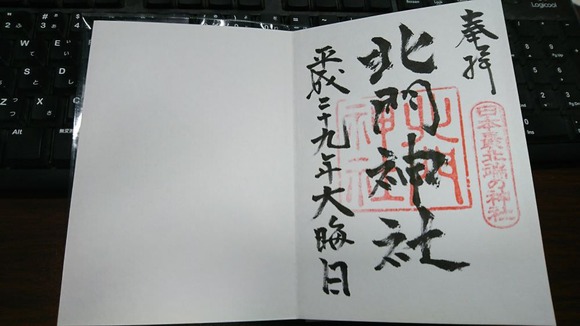 奉拝
日本最北端の神社
北門神社
北門神社
平成二十九年大晦日
Logicool
Q
W
E
A
S
D
Z
X
Alt